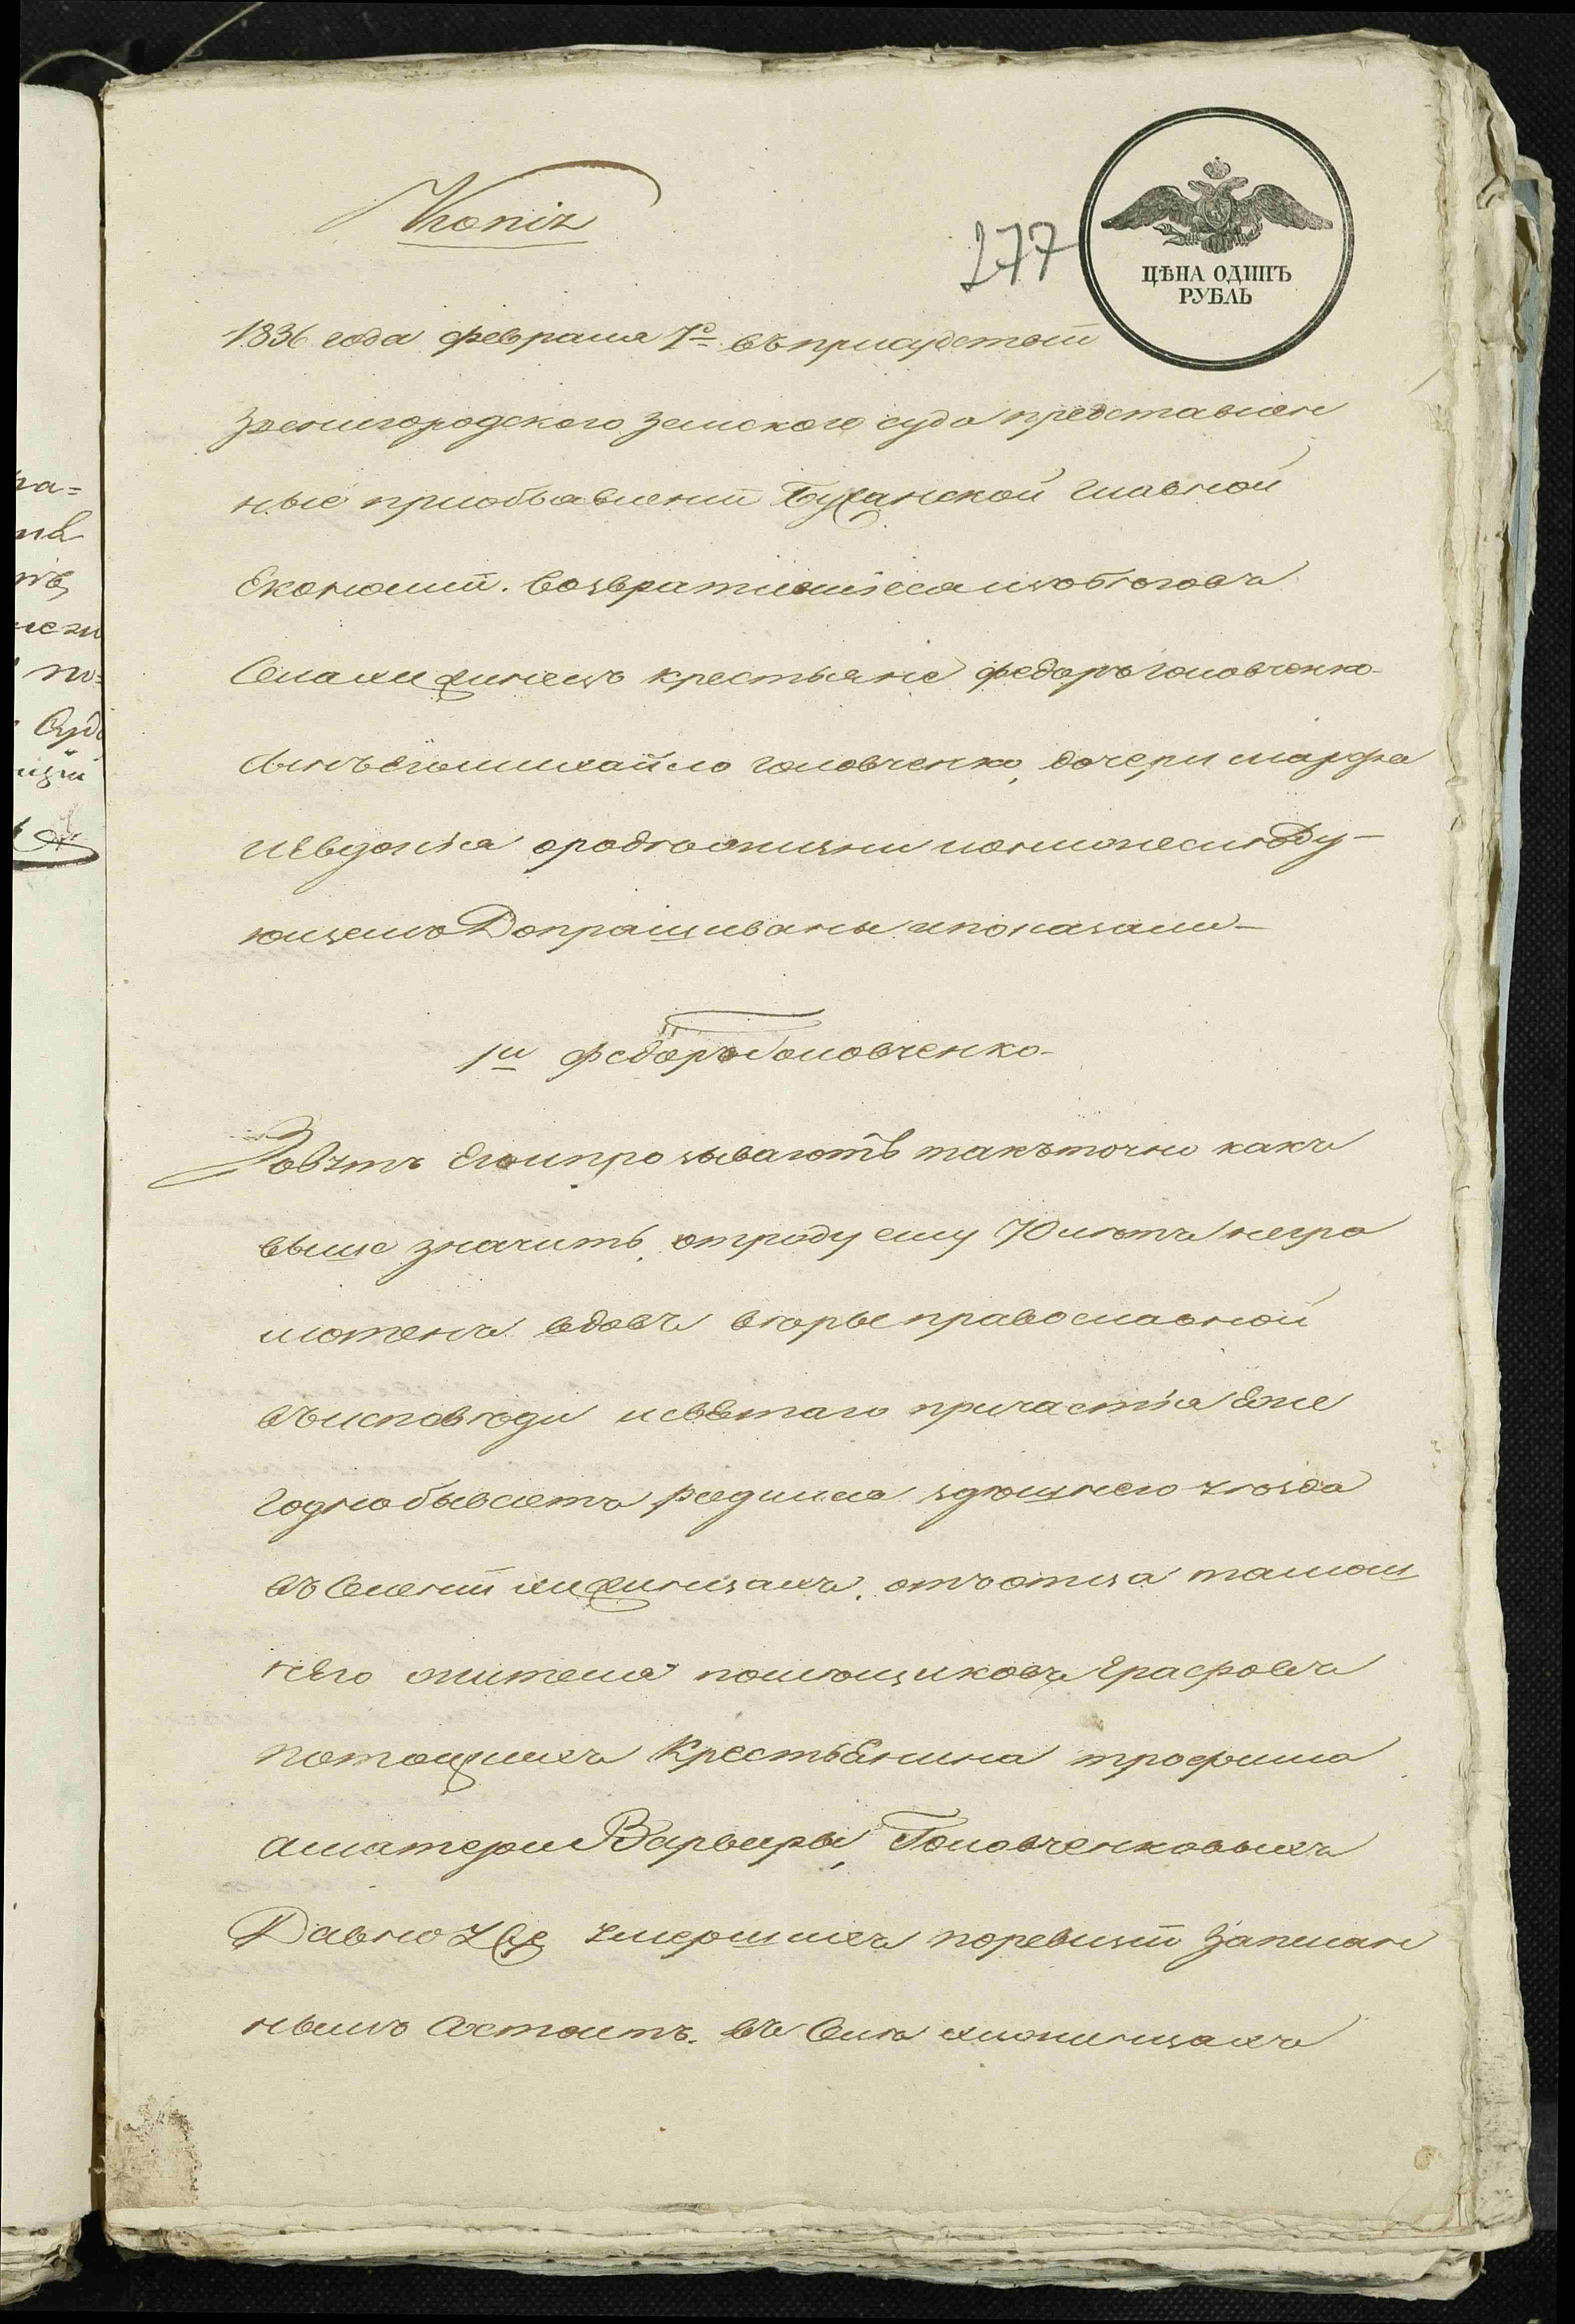 Копія
277
ЦѢНА ОДИНЪ
РУБЛЬ
1836 года февраля 7º въприсудствіи
Звенигородского земского суда представлен
ные приобъявленіи Буҗанской главной
Економіи. возвратившіеся изъ бѣговъ
Села крестьяне федоръ головченко
сынъ его михайло головченко, дочери марфа
и Евдокія о родѣ жизни и слѣду-
ющемъ Допрашиваны и показали
1й Федоръ Головченко
Зовутъ Его и прозываютъ такъ точно какъ
выше значитъ, отроду ему 70 лѣтъ негра
мотенъ вдовъ вѣры православной
въисповѣди исвѣтаго причастія Еже
годно бываетъ родился здѣшнего уѣзда
въ Селеніи отъ отца тамош
нѣго жителя помѣщиковъ Графовъ
Потоцкихъ КрестьЕнина трофима
аматери Варвары, Головченковыхъ
Давно Уже умершихъ поревизіи Записан
нымъ Состоитъ. въ Селѣ